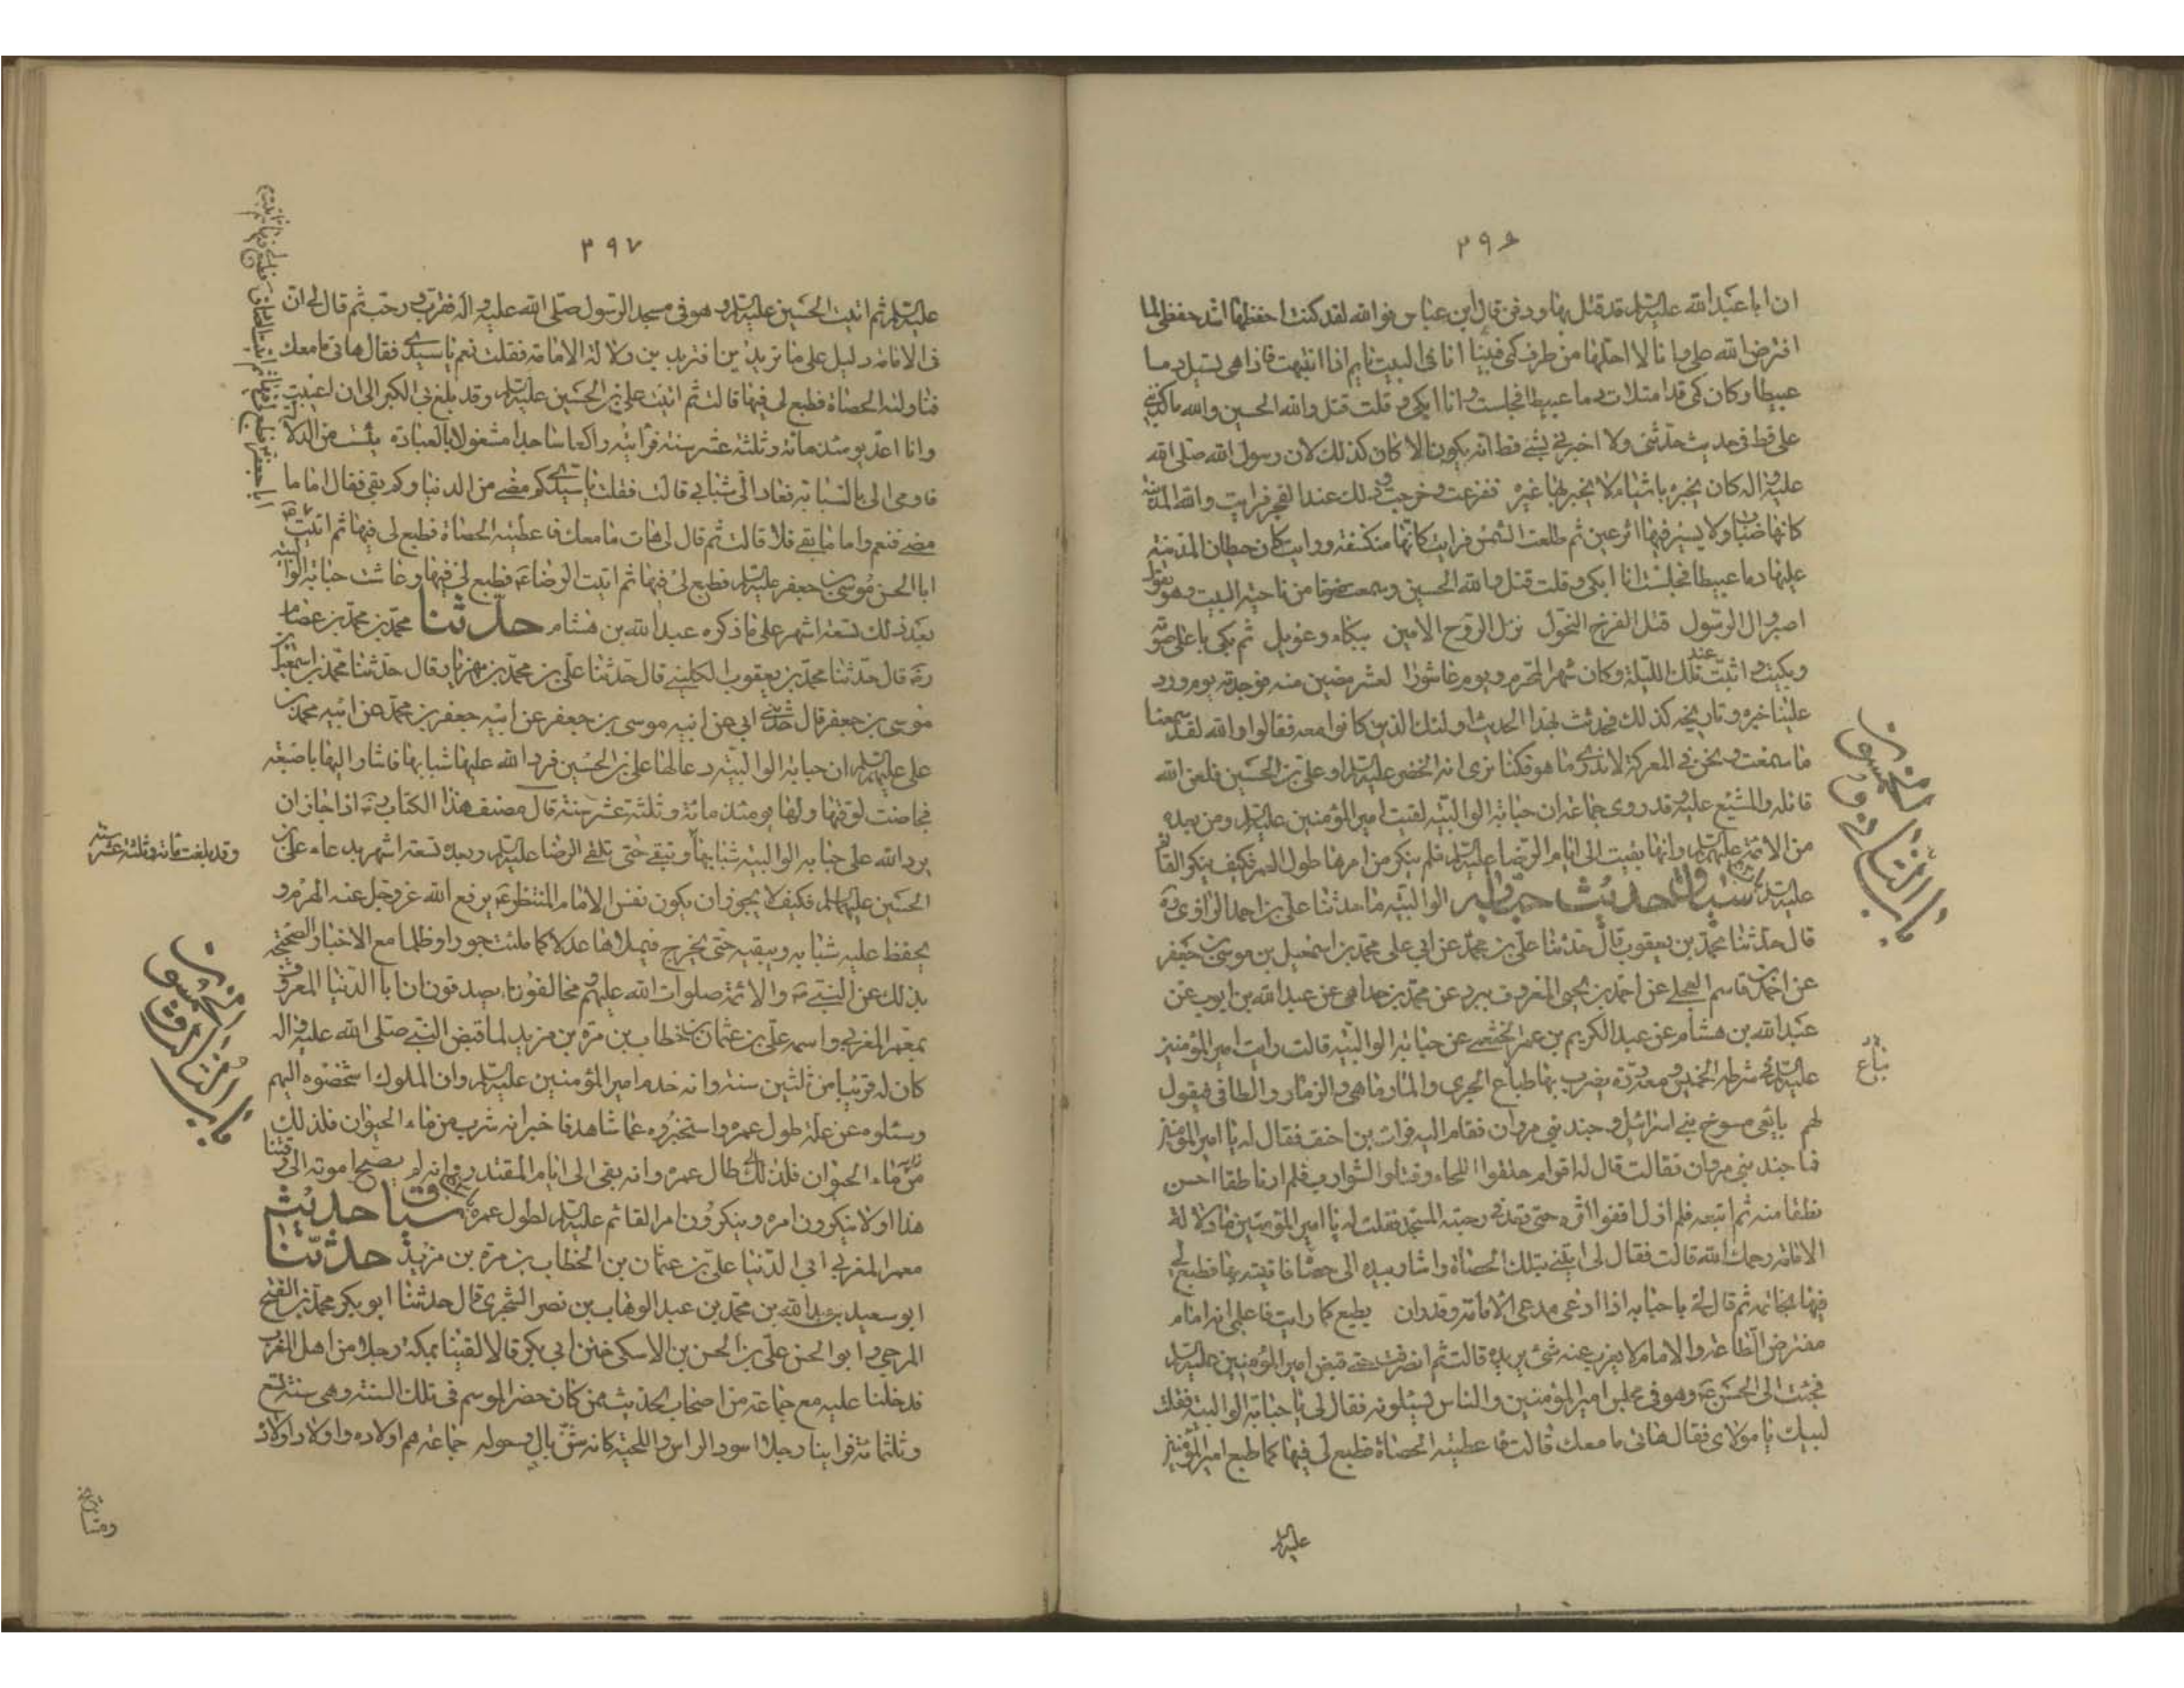 ٣٩٦
ان ابا عبد الله عليه السلام قد قتل بها ودفن قال ابن عباس فوالله لقد كنت احفظها اشد حفظي لما
افترض الله علي وانا لا احلها من طرف كمي فبينا انا في البيت نايم اذا انتبهت فاذا هي تسيل دما
عبيطا وكان كمي قد امتلات دما عبيطا فجلست وانا ابكي وقلت قتل والله الحسين والله ما كذبني
علي قط في حديث حدثني ولا اخبرني بشيء قط انه يكون الا كان كذلك لان رسول الله صلى الله
عليه واله كان يخبره باشياء لا يخبر بها غيره ففزعت وخرجت وذلك عند الفجر فرايت والله المدينة
كانها ضباب ولا يستبر فيها اثر عين ثم طلعت الشمس فرايت كانها منكسفة ورايت كان حيطان المدينة
عليها دما عبيطا فجلست وانا ابكي وقلت قتل والله الحسين وسمعت صوتا من ناحية البيت وهو يقول
اصبروا ال الرسول قتل الفرخ النحول نزل الروح الامين ببكاء وعويل ثم بكى باعلى صوته
وبكيت واثبت عند تلك الليلة وكان شهر المحرم ويوم عاشورا لعشر مضين منه فوجدته يوم ورد
علينا خبره وتاريخه كذلك فحدثت بهذا الحديث اولئك الذين كانوا معه فقالوا والله لقد سمعنا
ما سمعت ونحن في المعركة لا ندري ما هو فكنا نرى انه الخضر عليه السلام او علي بن الحسين فلعن الله
قاتله والمشيع عليه وقد روى جماعة ان حبابة الوالبية لقيت امير المؤمنين عليه السلام ومن بعده
من الائمة عليهم السلام وانها بقيت الى ايام الرضا عليه السلام فلم ينكر من امرها طول العمر فكيف ينكر القائم
عليه السلام سياق حديث حبابة الوالبية ما حدثنا علي بن احمد الدقاق ره
قال حدثنا محمد بن يعقوب قال حدثنا علي بن محمد عن ابي علي محمد بن اسمعيل بن موسى بن جعفر
عن احمد بن قاسم العجلي عن احمد بن يحيى المعروف ببرد عن محمد بن خداهي عن عبد الله بن ايوب عن
عبد الله بن هشام عن عبد الكريم بن عمر الخثعمي عن حبابة الوالبية قالت رايت امير المؤمنين
عليه السلام في شرطة الخميس ومعه درة يضرب بها طباع الجري والمارماهي والزمار والطافي ويقول
لهم يا بياعي مسوخ بني اسرائيل وجند بني مروان فقام اليه فرات بن احنف فقال له يا امير المؤمنين
فما جند بني مروان فقالت قال له اقوام حلقوا اللحاء وفتلوا الشوارب فلم ار ناطقا احسن
نطقا منه ثم اتبعه فلم ازل اقفوا اثره حتى قعد في رحبة المسجد فقلت له يا امير المؤمنين ما دلالة
الامامة رحمك الله قالت فقال لي ايتني بتلك الحصاة واشار بيده الى حصاة فاتيته بها فطبع لي
فيها بخاتمه ثم قال لي يا حبابة اذا ادعى مدعي الامامة وقدر ان يطبع كما رايت فاعلمي انه امام
مفترض الطاعة والامام لا يعزب عنه شئ يريده قالت ثم انصرفت حتى قبض امير المؤمنين عليه السلام
فجئت الى الحسن ع وهو في مجلس امير المؤمنين والناس يسئلونه فقال لي يا حبابة الوالبية فقلت
لبيك يا مولاي فقال هاتي ما معك قالت فاعطيته الحصاة فطبع لي فيها كما طبع امير المؤمنين
بياع
عليه السلام
٣٩٧
عليه السلام ثم اتيت الحسين عليه السلام وهو في مسجد الرسول صلى الله عليه واله فقرب ورحب ثم قال لي ان
في الامامة دليل على ما تريدين افتريدين دلالة الامامة فقلت نعم يا سيدي فقال هاتي ما معك
فناولته الحصاة فطبع لي فيها قالت ثم اتيت علي بن الحسين عليه السلام وقد بلغ بي الكبر الى ان اعييت
وانا اعد يومئذ مائة وثلثة عشر سنة فرايته راكعا ساجدا مشغولا بالعبادة يئست من الدلالة
فاومى الي بالسبابة فعاد الي شبابي قالت فقلت يا سيدي كم مضى من الدنيا وكم بقي فقال اما ما
مضى فنعم واما ما بقي فلا قالت ثم قال لي هات ما معك فاعطيته الحصاة فطبع لي فيها ثم اتيت
ابا جعفر ع فطبع لي فيها ثم اتيت ابا عبد الله الصادق ع فطبع لي فيها ثم اتيت
ابا الحسن موسى بن جعفر عليه السلام فطبع لي فيها ثم اتيت الرضا ع فطبع لي فيها وعاشت حبابة الوالبية
بعد ذلك تسعة اشهر على ما ذكره عبد الله بن هشام حدثنا محمد بن محمد بن عصام
ره قال حدثنا محمد بن يعقوب الكليني قال حدثنا علي بن محمد بن مهزيار قال حدثنا محمد بن اسمعيل بن
موسى بن جعفر قال حدثني ابي عن ابيه موسى بن جعفر عن ابيه جعفر بن محمد عن ابيه محمد بن
علي عليهم السلام ان حبابة الوالبية دعا لها علي بن الحسين فرد الله عليها شبابها فاشار اليها باصبعه
فحاضت لوقتها ولها يومئذ مائة وثلثة عشر سنة قال مصنف هذا الكتاب ره اذا جاز ان
يرد الله على حبابة الوالبية شبابها وتبقى حتى تلقى الرضا عليه السلام وبعده تسعة اشهر بدعاء علي بن
وقد بلغت مائة وثلثة عشر سنة
الحسين عليهما السلام فكيف لا يجوز ان يكون نفس الامام المنتظر ع يرفع الله عز وجل عنه الهرم و
يحفظ عليه شبابه ويبقيه حتى يخرج فيملاها عدلا كما ملئت جورا وظلما مع الاخبار الصحيحة
بذلك عن النبي ص والائمة صلوات الله عليهم ومخالفونا يصدقون ان ابا الدنيا المعروف
بمعمر المغربي واسمه علي بن عثمان بن خطاب بن مرة بن مزيد لما قبض النبي صلى الله عليه واله
كان له قريبا من ثلثين سنة وانه خدم امير المؤمنين عليه السلام وان الملوك اشخصوه اليهم
وسئلوه عن علة طول عمره واستخبروه عما شاهد فاخبر انه شرب من ماء الحيوان فلذلك
من ماء الحيوان فلذلك طال عمره وانه بقي الى ايام المقتدر وانه لم يصح موته الى وقتنا
هذا ولا ينكرون امره وينكرون امر القائم عليه السلام لطول عمره سياق حديث
معمر المغربي ابي الدنيا علي بن عثمان بن الخطاب بن مرة بن مزيد حدثنا
ابو سعيد بن عبد الله بن محمد بن عبد الوهاب بن نصر الشجري قال حدثنا ابو بكر محمد بن الفتح
المرجي وابو الحسن علي بن الحسن بن الاسكي ختن ابي بكر قالا لقينا بمكة رجلا من اهل المغرب
فدخلنا عليه مع جماعة من اصحاب الحديث ممن كان حضر الموسم في تلك السنة وهي سنة تسع
وثلثمائة فراينا رجلا اسود الراس واللحية كانه شن بال وحوله جماعة هم اولاده واولاد اولاده
ومشايخ